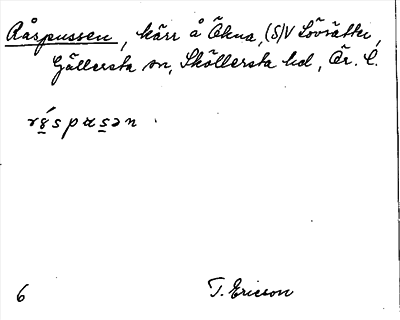 Råspussen, kärr å Äkna, (S)V Lövsätter,
Gällersta sn, Sköllersta hd, Ör. l.
rɷ́spɷsən.
6 T. Ericson